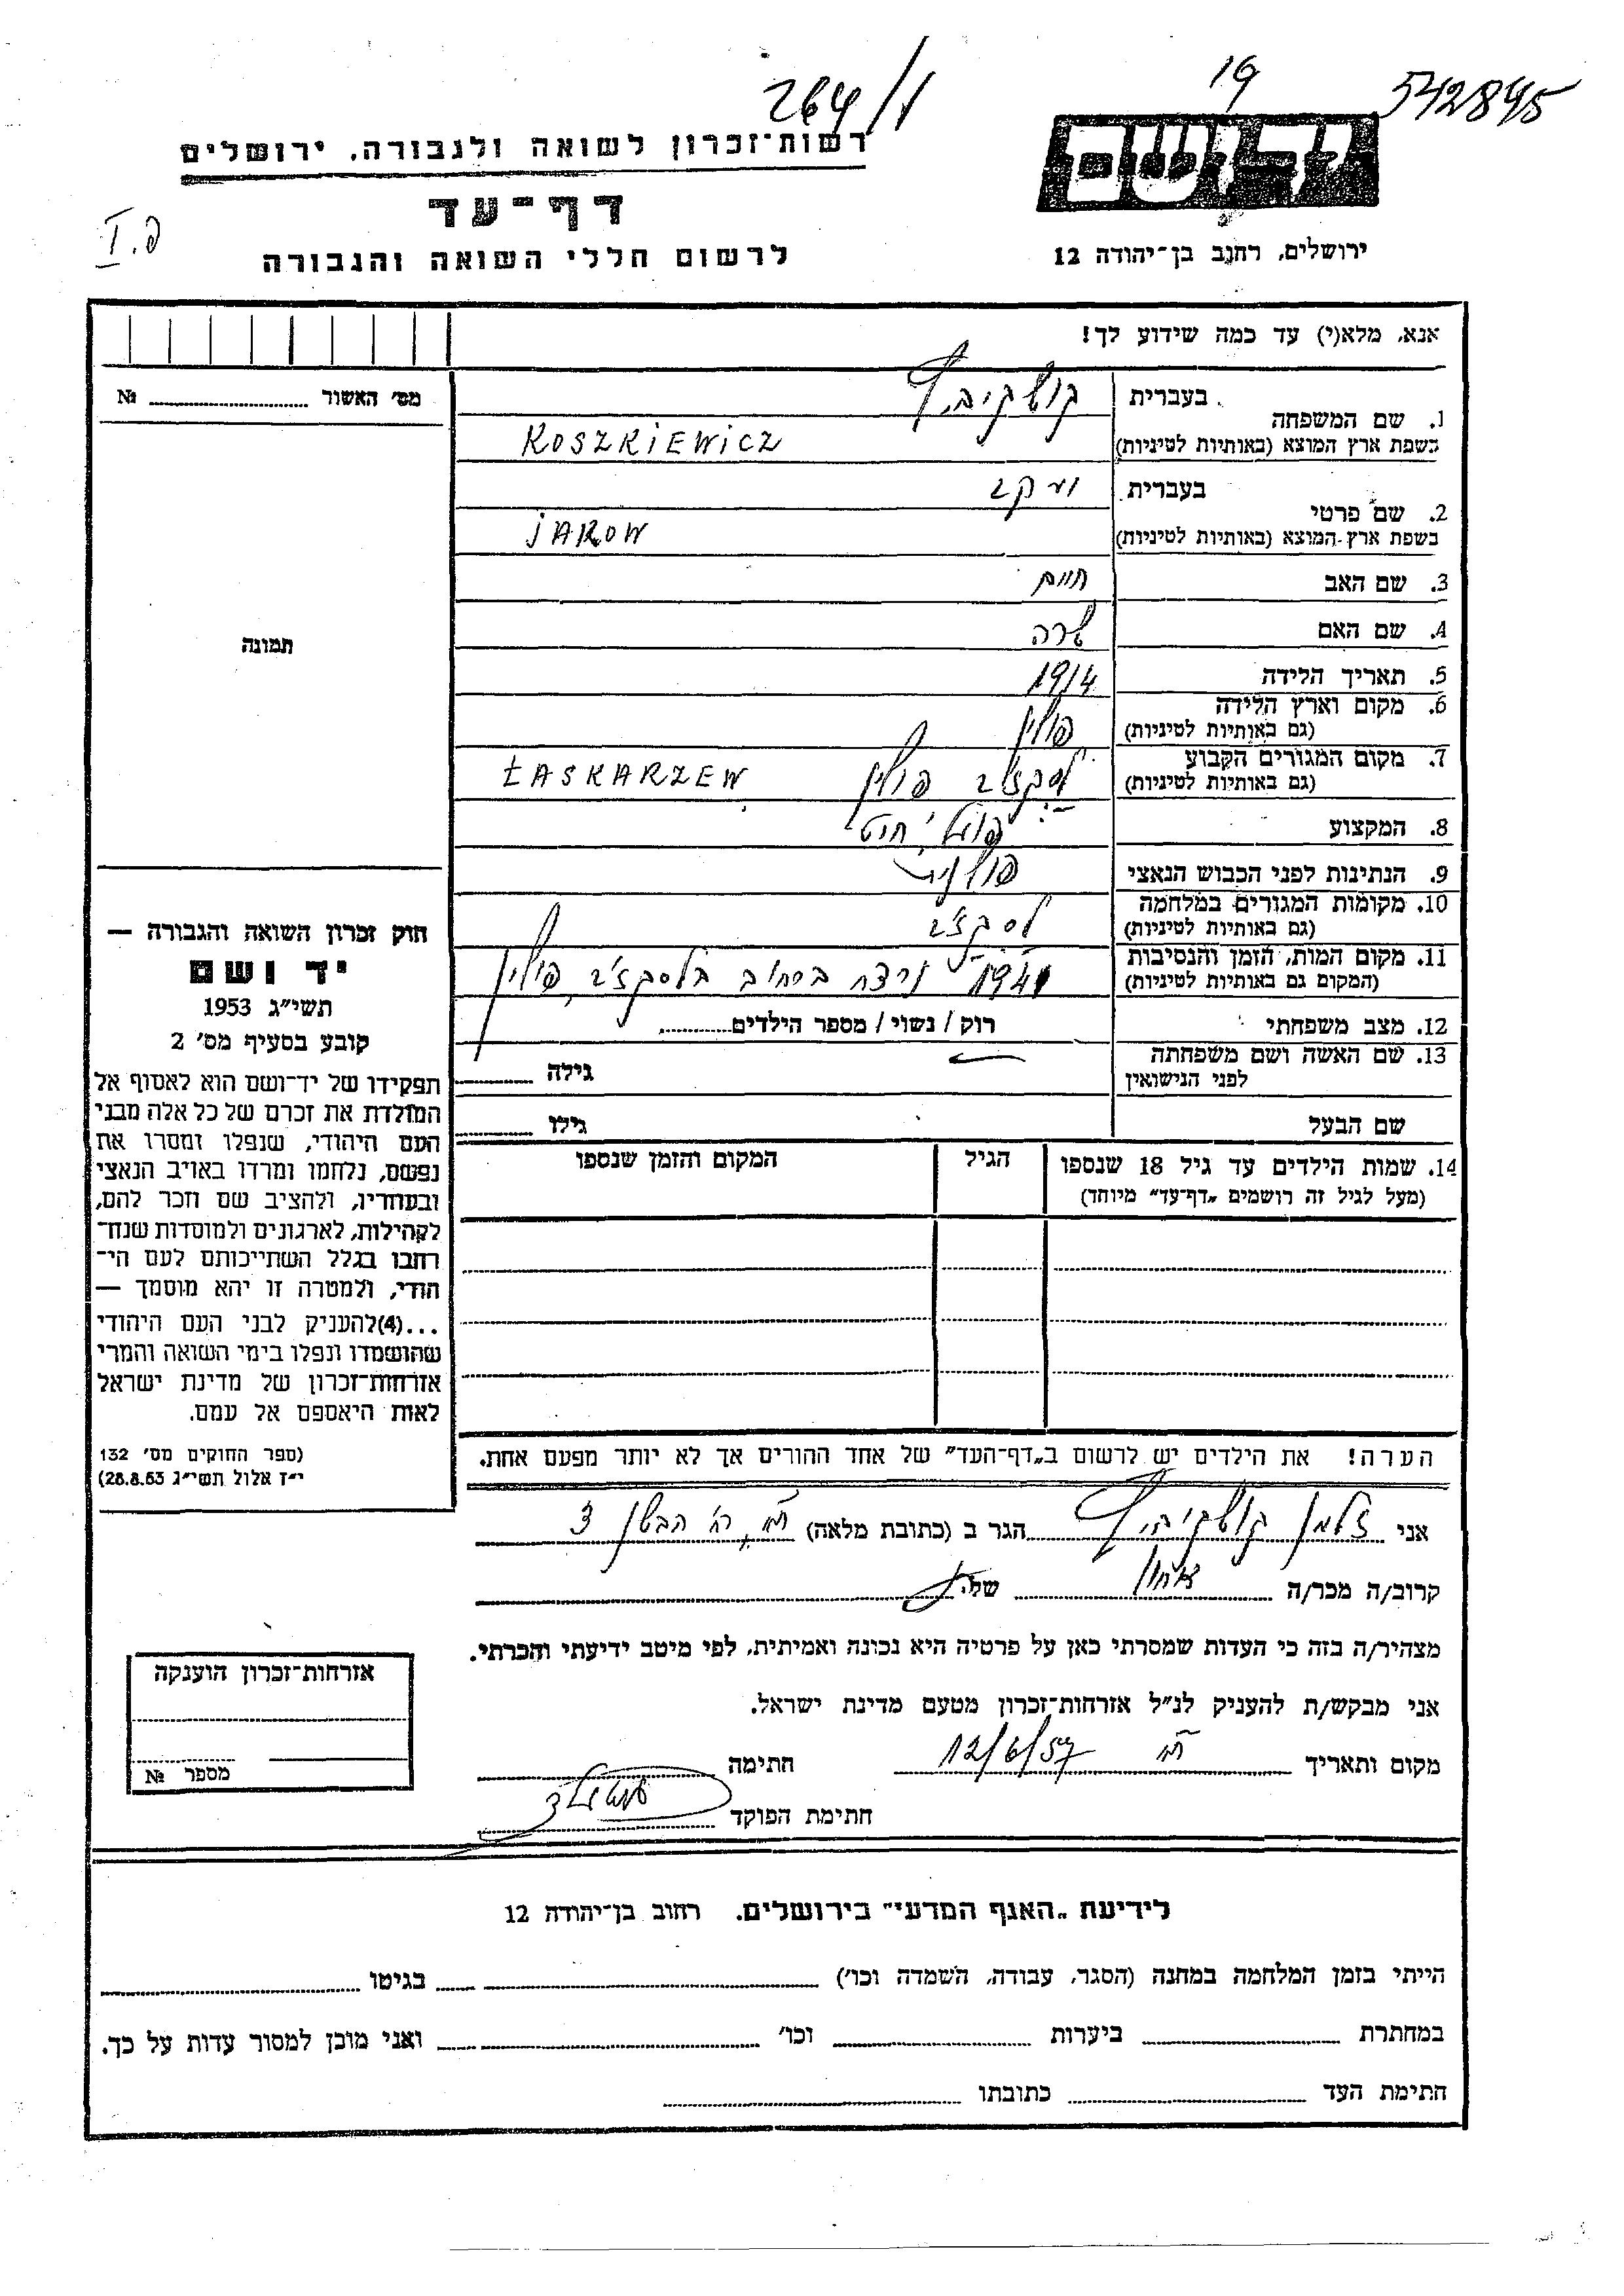 264/1
19
542845
רשות-זכרון לשואה ולגבורה, ירושלים
יד ושם
דף-עד
פ. I
לרשום חללי השואה והגבורה
ירושלים, רחוב בן-יהודה 12
אנא, מלא(י) עד כמה שידוע לך!
מס׳ האשור № ........
1. שם המשפחה בעברית קושקיביץ
בשפת ארץ המוצא (באותיות לטיניות) KOSZKIEWICZ
2. שם פרטי בעברית
בשפת ארץ-המוצא (באותיות לטיניות)
3. שם האב חיים
4. שם האם שרה
5. תאריך הלידה 1914
6. מקום וארץ הלידה פולין
(גם באותיות לטיניות)
7. מקום המגורים הקבוע פולין ŁASKARZEW
(גם באותיות לטיניות)
8. המקצוע פועל, חייט
9. הנתינות לפני הכבוש הנאצי פולנית
10. מקומות המגורים במלחמה
(גם באותיות לטיניות)
11. מקום המות, הזמן והנסיבות נרצח ברחוב פולין
(המקום גם באותיות לטיניות)
12. מצב משפחתי רווק / נשוי / מספר הילדים........
13. שם האשה ושם משפחתה גילה ........
לפני הנישואין
שם הבעל גילו ........
14. שמות הילדים עד גיל 18 שנספו הגיל המקום והזמן שנספו
(מעל לגיל זה רושמים „דף-עד״ מיוחד)
תמונה
חוק זכרון השואה והגבורה —
יד ושם
תשי״ג 1953
קובע בסעיף מס׳ 2
תפקידו של יד-ושם הוא לאסוף אל
המולדת את זכרם של כל אלה מבני
העם היהודי, שנפלו ומסרו את
נפשם, נלחמו ומרדו באויב הנאצי
ובעוזריו, ולהציב שם וזכר להם,
לקהילות, לארגונים ולמוסדות שנח-
רחבו בגלל השתייכותם לעם הי-
הודי, ולמטרה זו יהא מוסמך —
...(4)להעניק לבני העם היהודי
שהושמדו ונפלו בימי השואה והמרי
אזרחות-זכרון של מדינת ישראל
לאות היאספם אל עמם.
(ספר החוקים מס׳ 132
י״ז אלול תשי״ג 28.8.53)
הערה! את הילדים יש לרשום ב„דף-העד״ של אחד ההורים אך לא יותר מפעם אחת.
אני זלמן קושקיביץ הגר ב (כתובת מלאה) ת״א, רח׳ 3
קרוב/ה מכר/ה של
מצהיר/ה בזה כי העדות שמסרתי כאן על פרטיה היא נכונה ואמיתית, לפי מיטב ידיעתי והכרתי.
אני מבקש/ת להעניק לנ״ל אזרחות-זכרון מטעם מדינת ישראל.
מקום ותאריך ת״א 12/6/57 חתימה
חתימת הפוקד
אזרחות-זכרון הוענקה
מספר №
לידיעת „האגף המדעי״ בירושלים, רחוב בן-יהודה 12
הייתי בזמן המלחמה במחנה (הסגר, עבודה, השמדה וכו׳) ........ בגיטו ........
במחתרת ........ ביערות ........ וכו׳ ........ ואני מוכן למסור עדות על כך.
חתימת העד ........ כתובתו ........